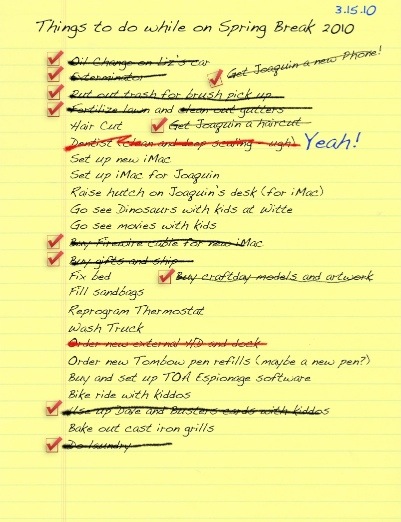 3.15.10
Things to do while on Spring Break 2010
Oil Change on Liz's car
Exterminator
Get Joaquin a new Phone!
Put out trash for brush pick up
Fertilize lawn and clean out gutters
Hair Cut
Get Joaquin a haircut
Dentist (clean and deep scaling - ugh) Yeah!
Set up new iMac
Set up iMac for Joaquin
Raise hutch on Joaquin's desk (for iMac)
Go see Dinosaurs with kids at Witte
Go see movies with kids
Buy Firewire cable for new iMac
Buy gifts and ship
Fix bed
Buy craftday models and artwork
Fill sandbags
Reprogram Thermostat
Wash Truck
Order new external H/D and dock
Order new Tombow pen refills (maybe a new pen?)
Buy and set up TOA Espionage software
Bike ride with kiddos
Use up Dave and Busters cards with kiddos
Bake out cast iron grills
Do laundry